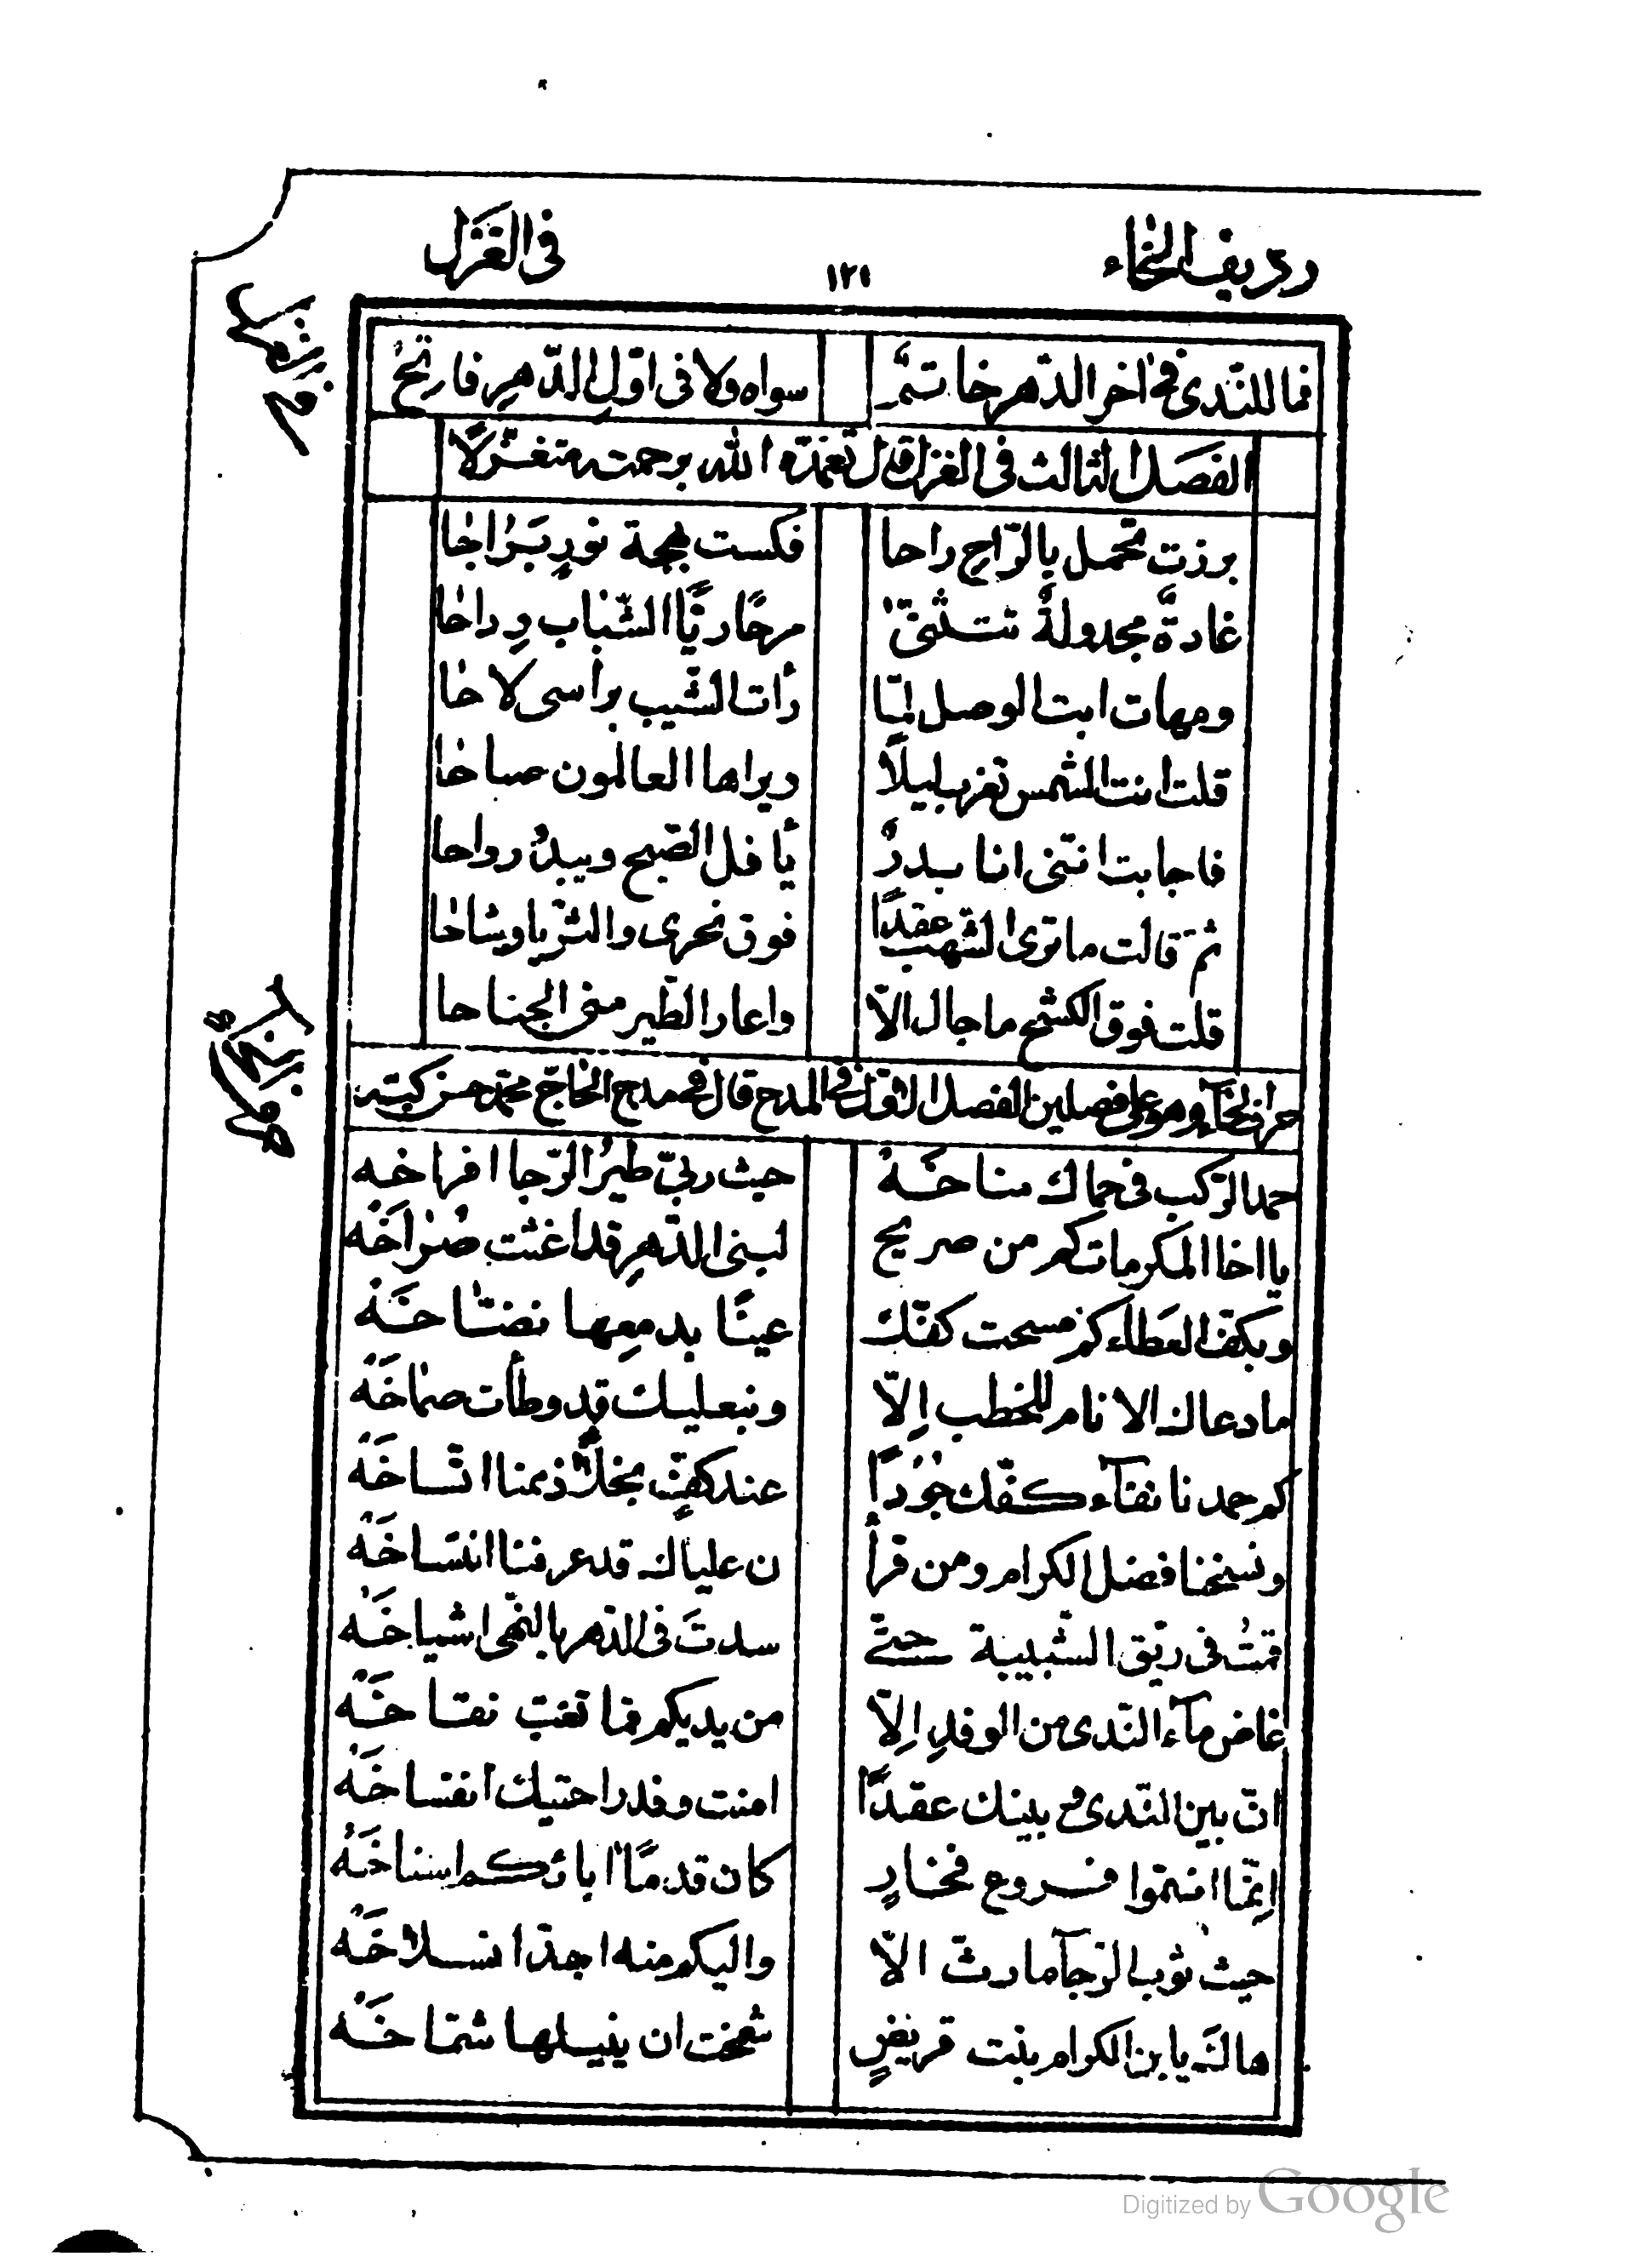 رديف الخاء ١٢١ في الغزل
فما للندى في اخر الدهر خاتمٌ سواه ولا في اوّل الدّهر فارتخُ
الفصل الثالث في الغزل قال تغمّده الله برحمته متغزّلًا
برزت تحمل بالرّاح راحا فكست بهجة نورٍ براحا
غادةٌ مجدولةٌ تتثنّى مرحًا ريّا الشّباب رداحا
ومهات ابت الوصل لمّا رأت الشّيب برأسى لاحا
قلت انت الشمس تغرب ليلًا ويراها العالمون صباحا
فاجابت انّنى انا بدرٌ يأفل الصّبح ويبدُ رواحا
ثمّ قالت ما ترى الشهب عقدًا فوق نحرى والثريّا وشاحا
قلت فوق الكشح ما جال الّا واعار الطّير منى الجناحا
حرف الخآء وهو على فصلين الفصل الاوّل في المدح قال في مدح الحاج محمّد حسن كبّه
حمد الرّكب في حماك مناخَهُ حيث ربّى طيرُ الرّجا افراخَه
يا اخا المكرمات كم من صريخ لبنى الدّهرِ قد اغثت صُراخَهْ
وبكفّ العَطاء كم مسحت كفّك عينًا بدمعِها نضّاخَهْ
ما دعاك الانام للخطب إلّا وبنعليك قد وطأت صماخَهْ
كم حمدنا نقآء كفّك جُودًا عند كفٍّ بخلًا ذممنا اتّساخَهْ
ونسخنا فضل الكرام ومن قرأ ن علياك قد عرفنا انتساخَهْ
قمتُ في ريّق الشّبيبة حتّى سدتَ في الدّهر بالنّهى اشياخَهْ
غاض مآء النّدى من الوفدِ إلّا من يديكم فما تغبّ نقّاخَهْ
انّ بين النّدى وبينك عقدًا امنت وفد راحتيك انفساخَهْ
إنّما انتموا فروع فخارٍ كان قدمًا اباؤكم اسناخَهْ
حيث ثوب الرّجآ ما رثّ الّا واليكم منه اجدّ انسلاخَهْ
هاكَ يا بن الكرام بنت قريضٍ شمخت ان ينيلها شمّاخَهْ